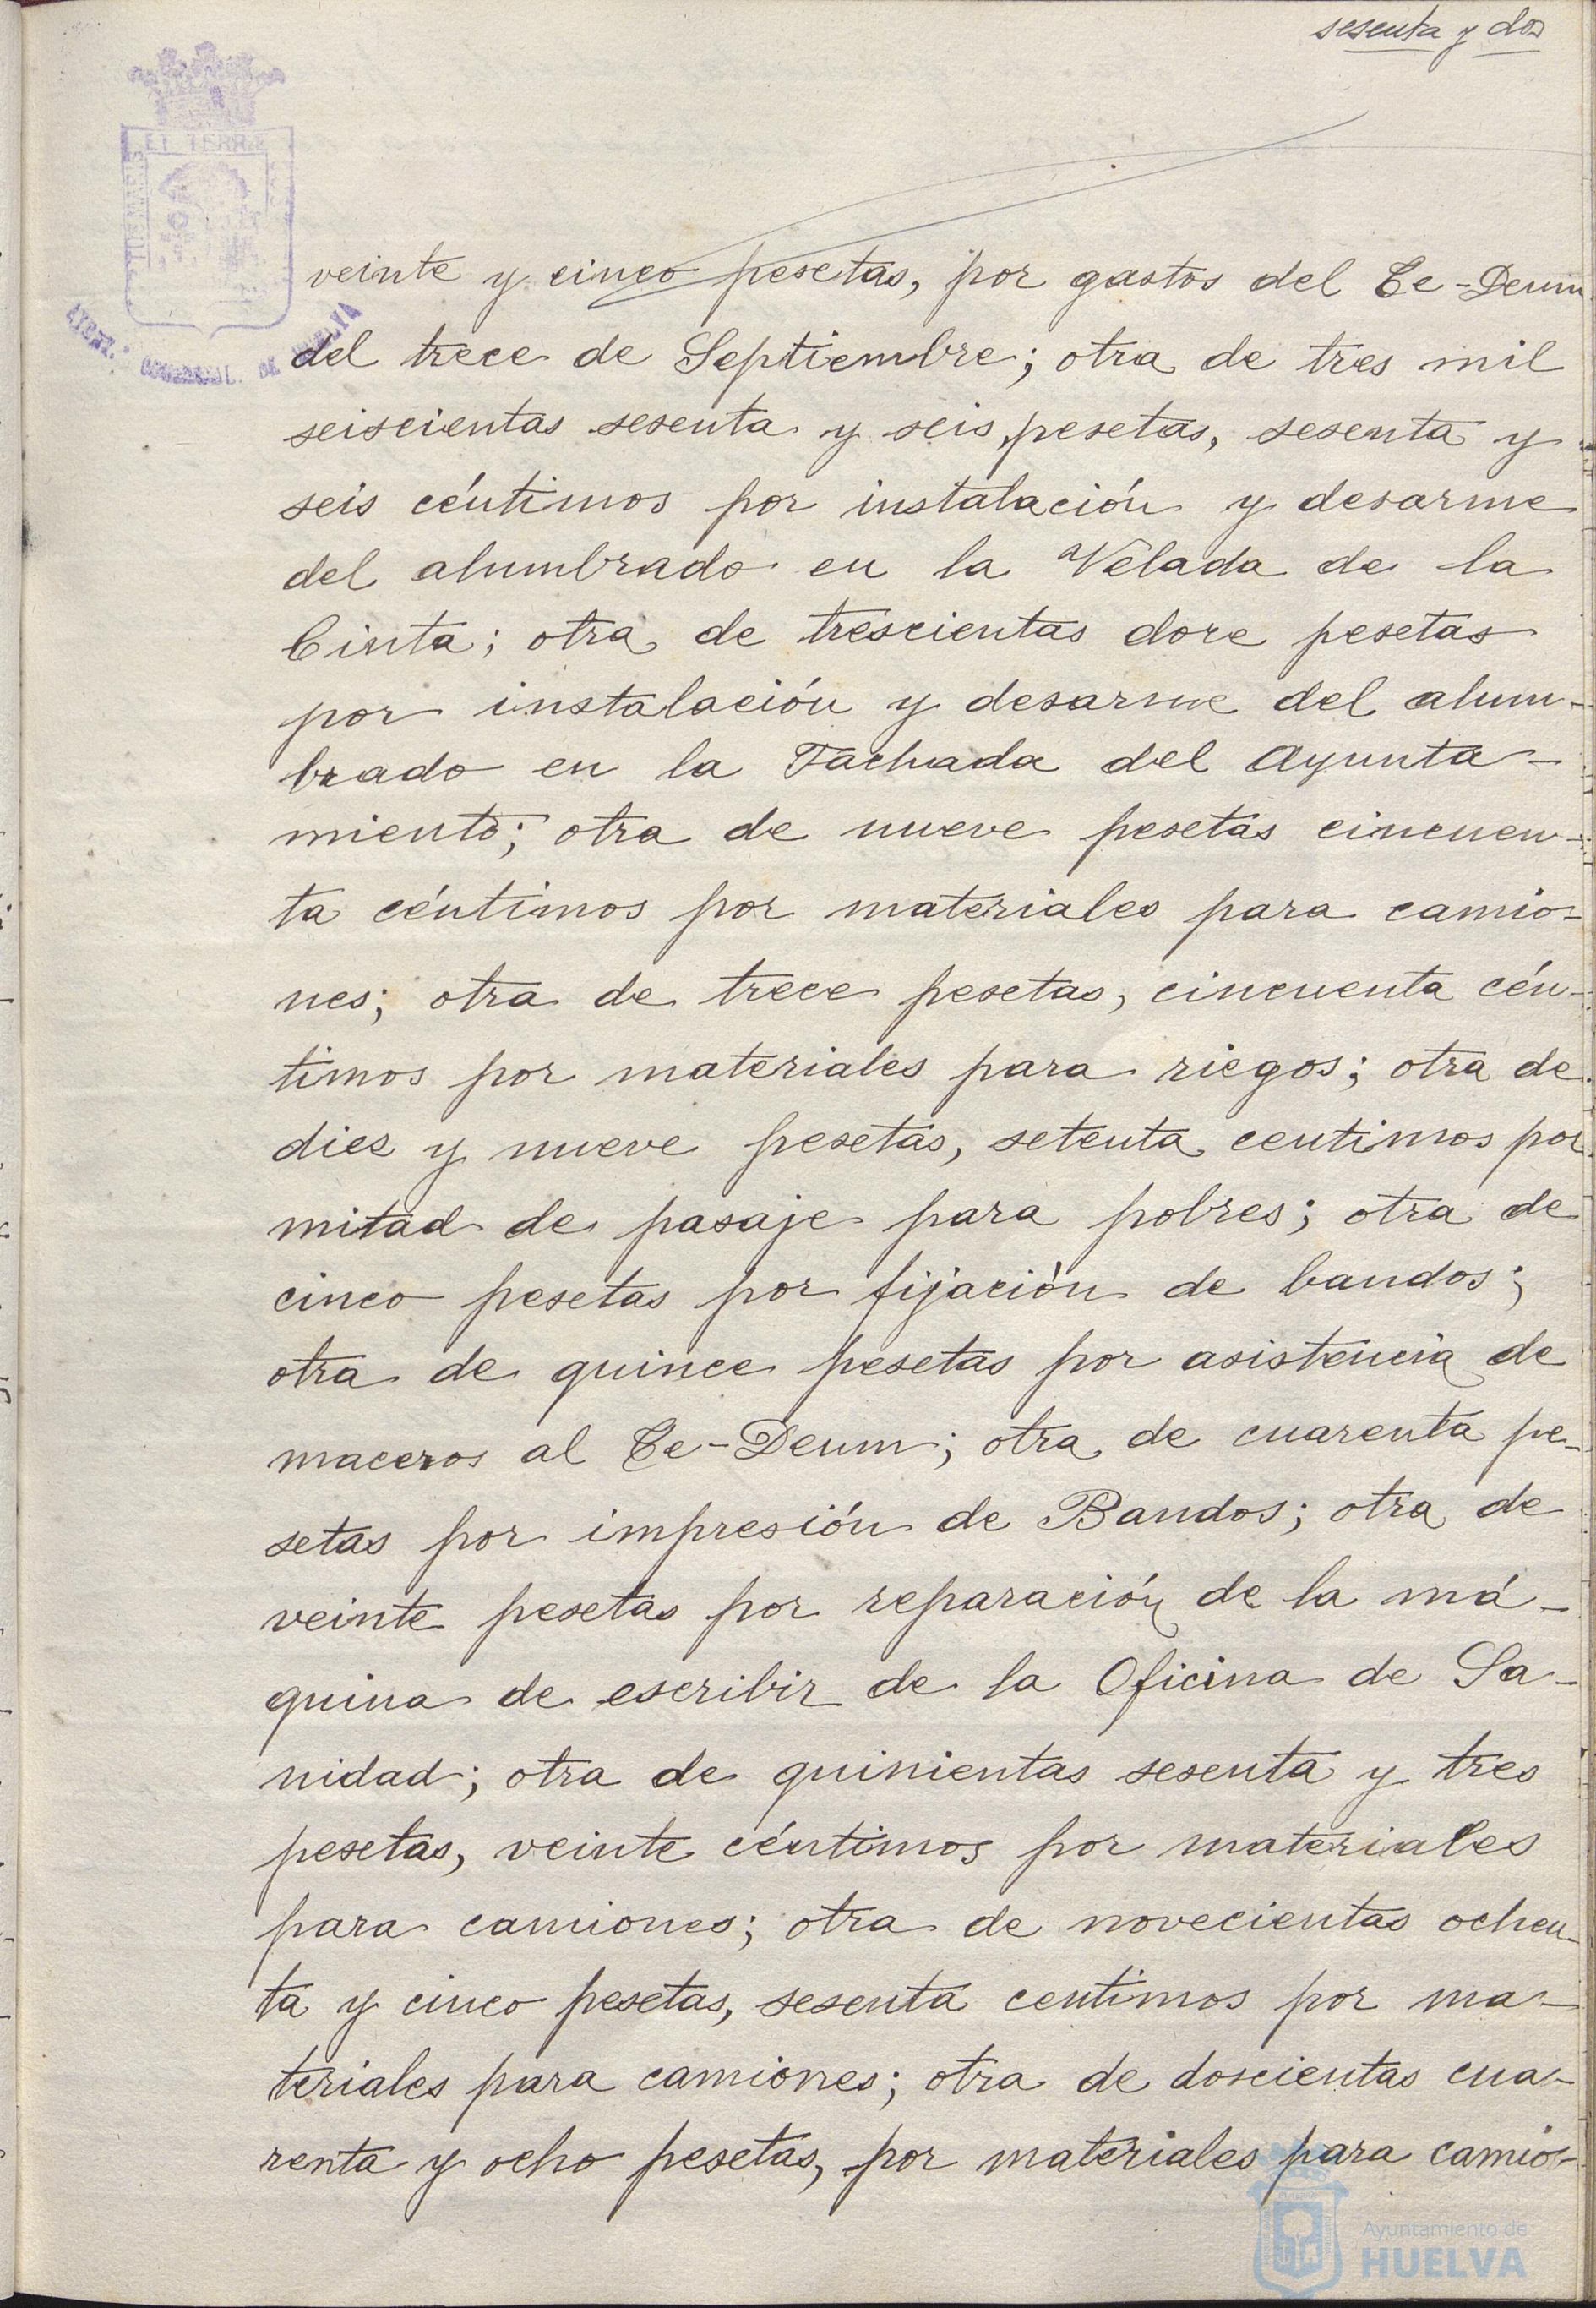 sesenta y dos
ET TERRÆ
veinte y cinco pesetas, por gastos del Te-Deum
del trece de Septiembre; otra de tres mil
seiscientas sesenta y seis pesetas, sesenta y
seis céntimos por instalación y desarme
del alumbrado en la Velada de la
Cinta; otra de trescientas doce pesetas
por instalación y desarme del alum-
brado en la Fachada del Ayunta-
miento; otra de nueve pesetas cincuen-
ta céntimos por materiales para camio-
nes; otra de trece pesetas, cincuenta cén-
timos por materiales para riegos; otra de
diez y nueve pesetas, setenta centimos por
mitad de pasaje para pobres; otra de
cinco pesetas por fijación de bandos;
otra de quince pesetas por asistencia de
maceros al Te-Deum; otra de cuarenta pe-
setas por impresión de Bandos; otra de
veinte pesetas por reparación de la má-
quina de escribir de la Oficina de Sa-
nidad; otra de quinientas sesenta y tres
pesetas, veinte céntimos por materiales
para camiones; otra de novecientas ochen-
ta y cinco pesetas, sesenta centimos por ma-
teriales para camiones; otra de doscientas cua-
renta y ocho pesetas, por materiales para camio-
Ayuntamiento de
HUELVA